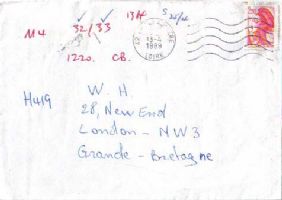 13A
M4 32/33
1220. CB.
13-4
1989
LOIRE
H419
W. H
28, New End
London - NW3
Grande - Bretagne